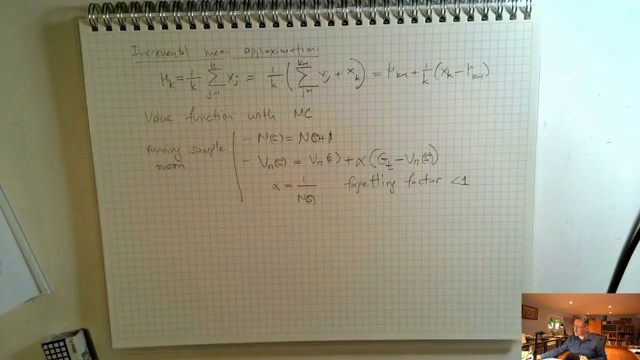 Incremental mean approximation:
μ_k = 1/k ∑_{j=1}^{k} x_j = 1/k ( ∑_{j=1}^{k-1} x_j + x_k ) = μ_{k-1} + 1/k (x_k − μ_{k-1})
Value function with MC
running sample mean
− N(s) = N(s)+1
− V_π(s) = V_π(s) + α (G_t − V_π(s))
α = 1/N(s) forgetting factor <1